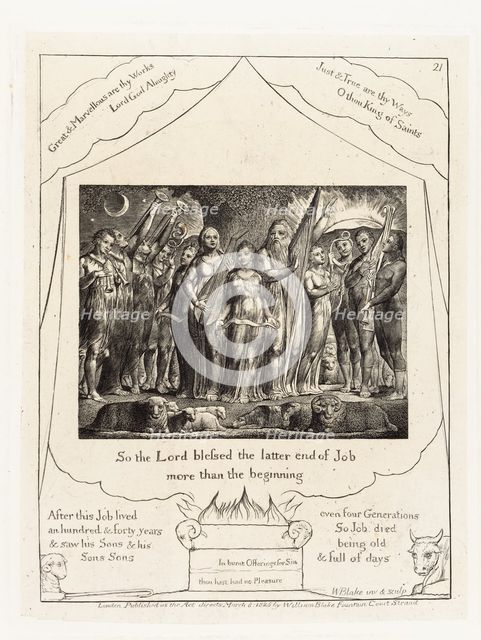 21
Great & Marvellous are thy Works
Lord God Almighty
Just & True are thy Ways
O thou King of Saints
So the Lord blefsed the latter end of Job
more than the beginning
After this Job lived
an hundred & forty years
& saw his Sons & his
Sons Sons
even four Generations
So Job died
being old
& full of days
In burnt Offerings for Sin
thou hast had no Pleasure
WBlake inv & sculp
London Published as the Act directs March 8: 1825 by William Blake Fountain Court Strand
Heritage
Heritage
Heritage
Heritage
Heritage
Heritage
©